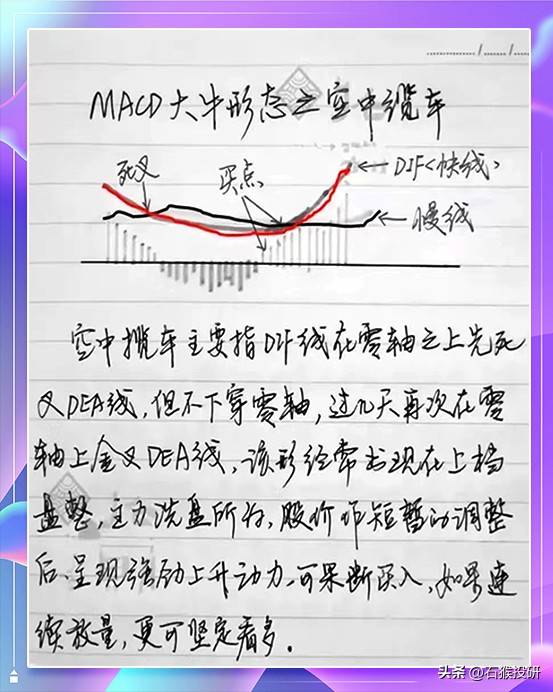 MACD大牛形态之空中缆车
死叉
买点
DIF<快线>
慢线
空中揽车主要指DIF线在零轴之上先死
叉DEA线，但不下穿零轴，过几天再次在零
轴上金叉DEA线，该形经常出现在上档
盘整，主力洗盘所为，股价作短暂的调整
后、呈现强劲上升动力，可果断买入，如果连
续放量，更可坚定看多。
头条 @石猴投研